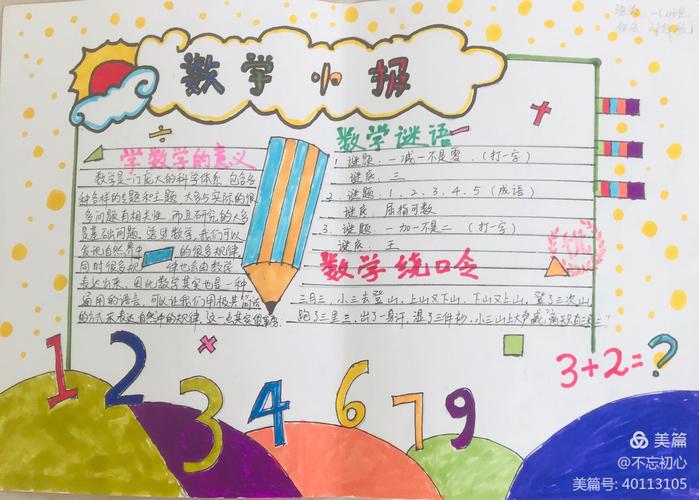 数学小报
学数学的意义
数学是一门庞大的科学体系,包含各
种各样的专题和主题,大多与实际的很
多问题有相关性,而且研究的大多
是基础问题。透过数学,我们可以
发现自然界中的很多规律,
同时很多规律也会由数学
表达出来,因此数学其实也是一种
通用的语言,可以让我们用极其简洁
的方式来表达自然中的规律,这一点其实很重要。
数学谜语
1. 谜题:一减一不是零。(打一字)
谜底:三
2. 谜题:1、2、3、4、5(成语)
谜底:屈指可数
3. 谜题:一加一不是二(打一字)
谜底:王
数学绕口令
三月三,小三去登山,上山又下山,下山又上山,登了三次山,
跑了三里三,出了一身汗,湿了三件衫,小三山上大声喊
优
3+2=?
1 2 3 4 5 6 7 9
美篇
@不忘初心
美篇号: 40113105